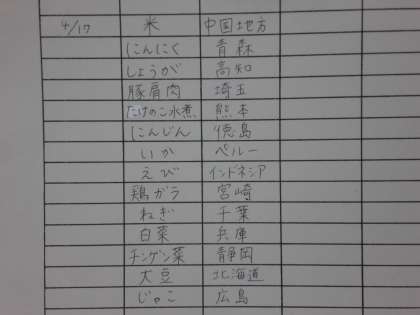 4/17 米 中国地方
にんにく 青森
しょうが 高知
豚肩肉 埼玉
たけのこ水煮 熊本
にんじん 徳島
いか ペルー
えび インドネシア
鶏ガラ 宮崎
ねぎ 千葉
白菜 兵庫
チンゲン菜 静岡
大豆 北海道
じゃこ 広島